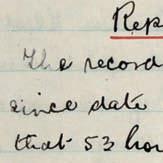 Rep
The record
since date
that 53 hou